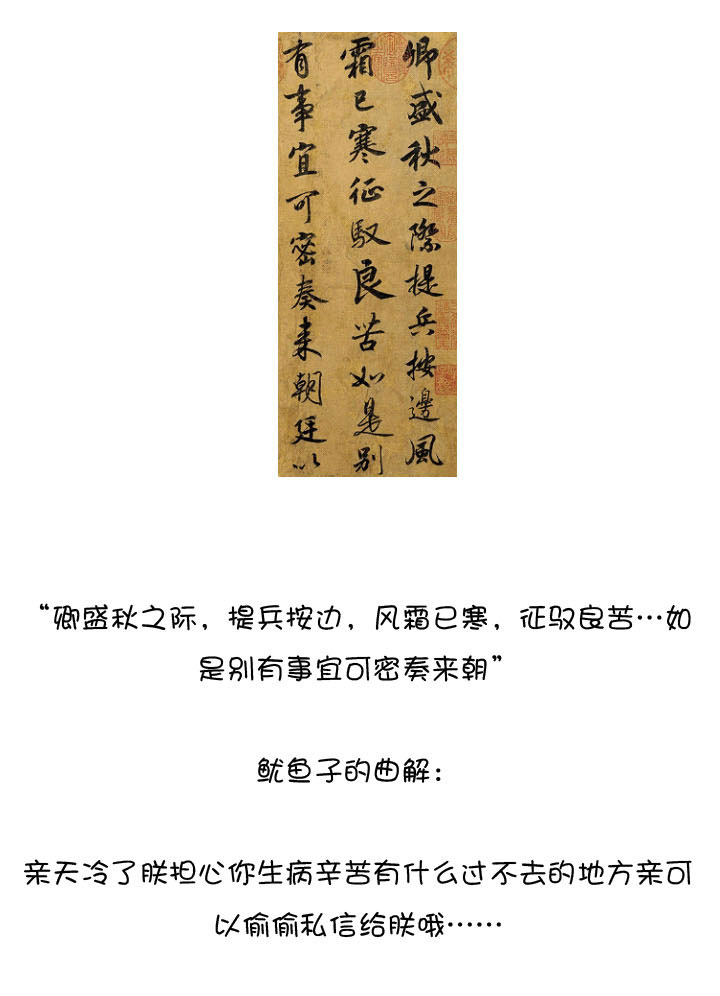 卿盛秋之際提兵按邊風
霜已寒征馭良苦如是别
有事宜可密奏来朝廷以
“卿盛秋之际，提兵按边，风霜已寒，征驭良苦…如
是别有事宜可密奏来朝”
鱿鱼子的曲解：
亲天冷了朕担心你生病辛苦有什么过不去的地方亲可
以偷偷私信给朕哦……